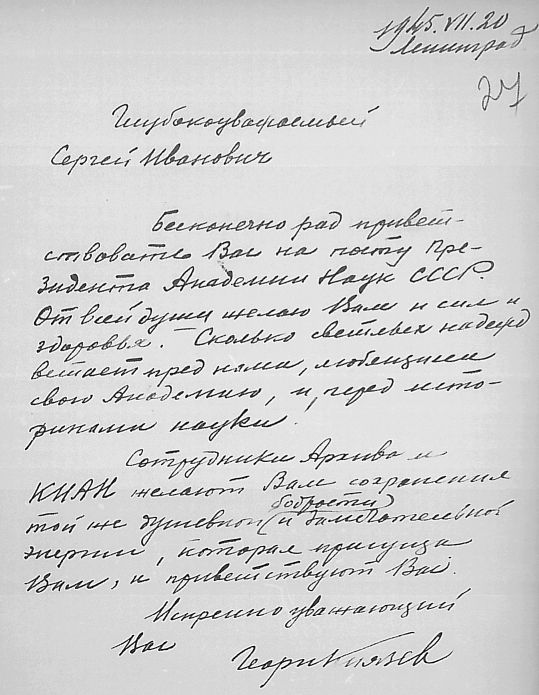 1945.VII.20
Ленинград
27
Глубокоуважаемый
Сергей Иванович
Бесконечно рад привет-
ствовать Вас на посту Пре-
зидента Академии Наук СССР.
От всей души желаю Вам и сил и
здоровья. Сколько светлых надежд
встает пред нами, любящими
свою Академию, и, перед исто-
риками науки!
Сотрудники Архива и
КИАН желают Вам сохранения
той же душевной (и бодрости) замечательной
энергии, которая присуща
Вам, и приветствуют Вас.
Искренно уважающий
Вас
Георг Князев